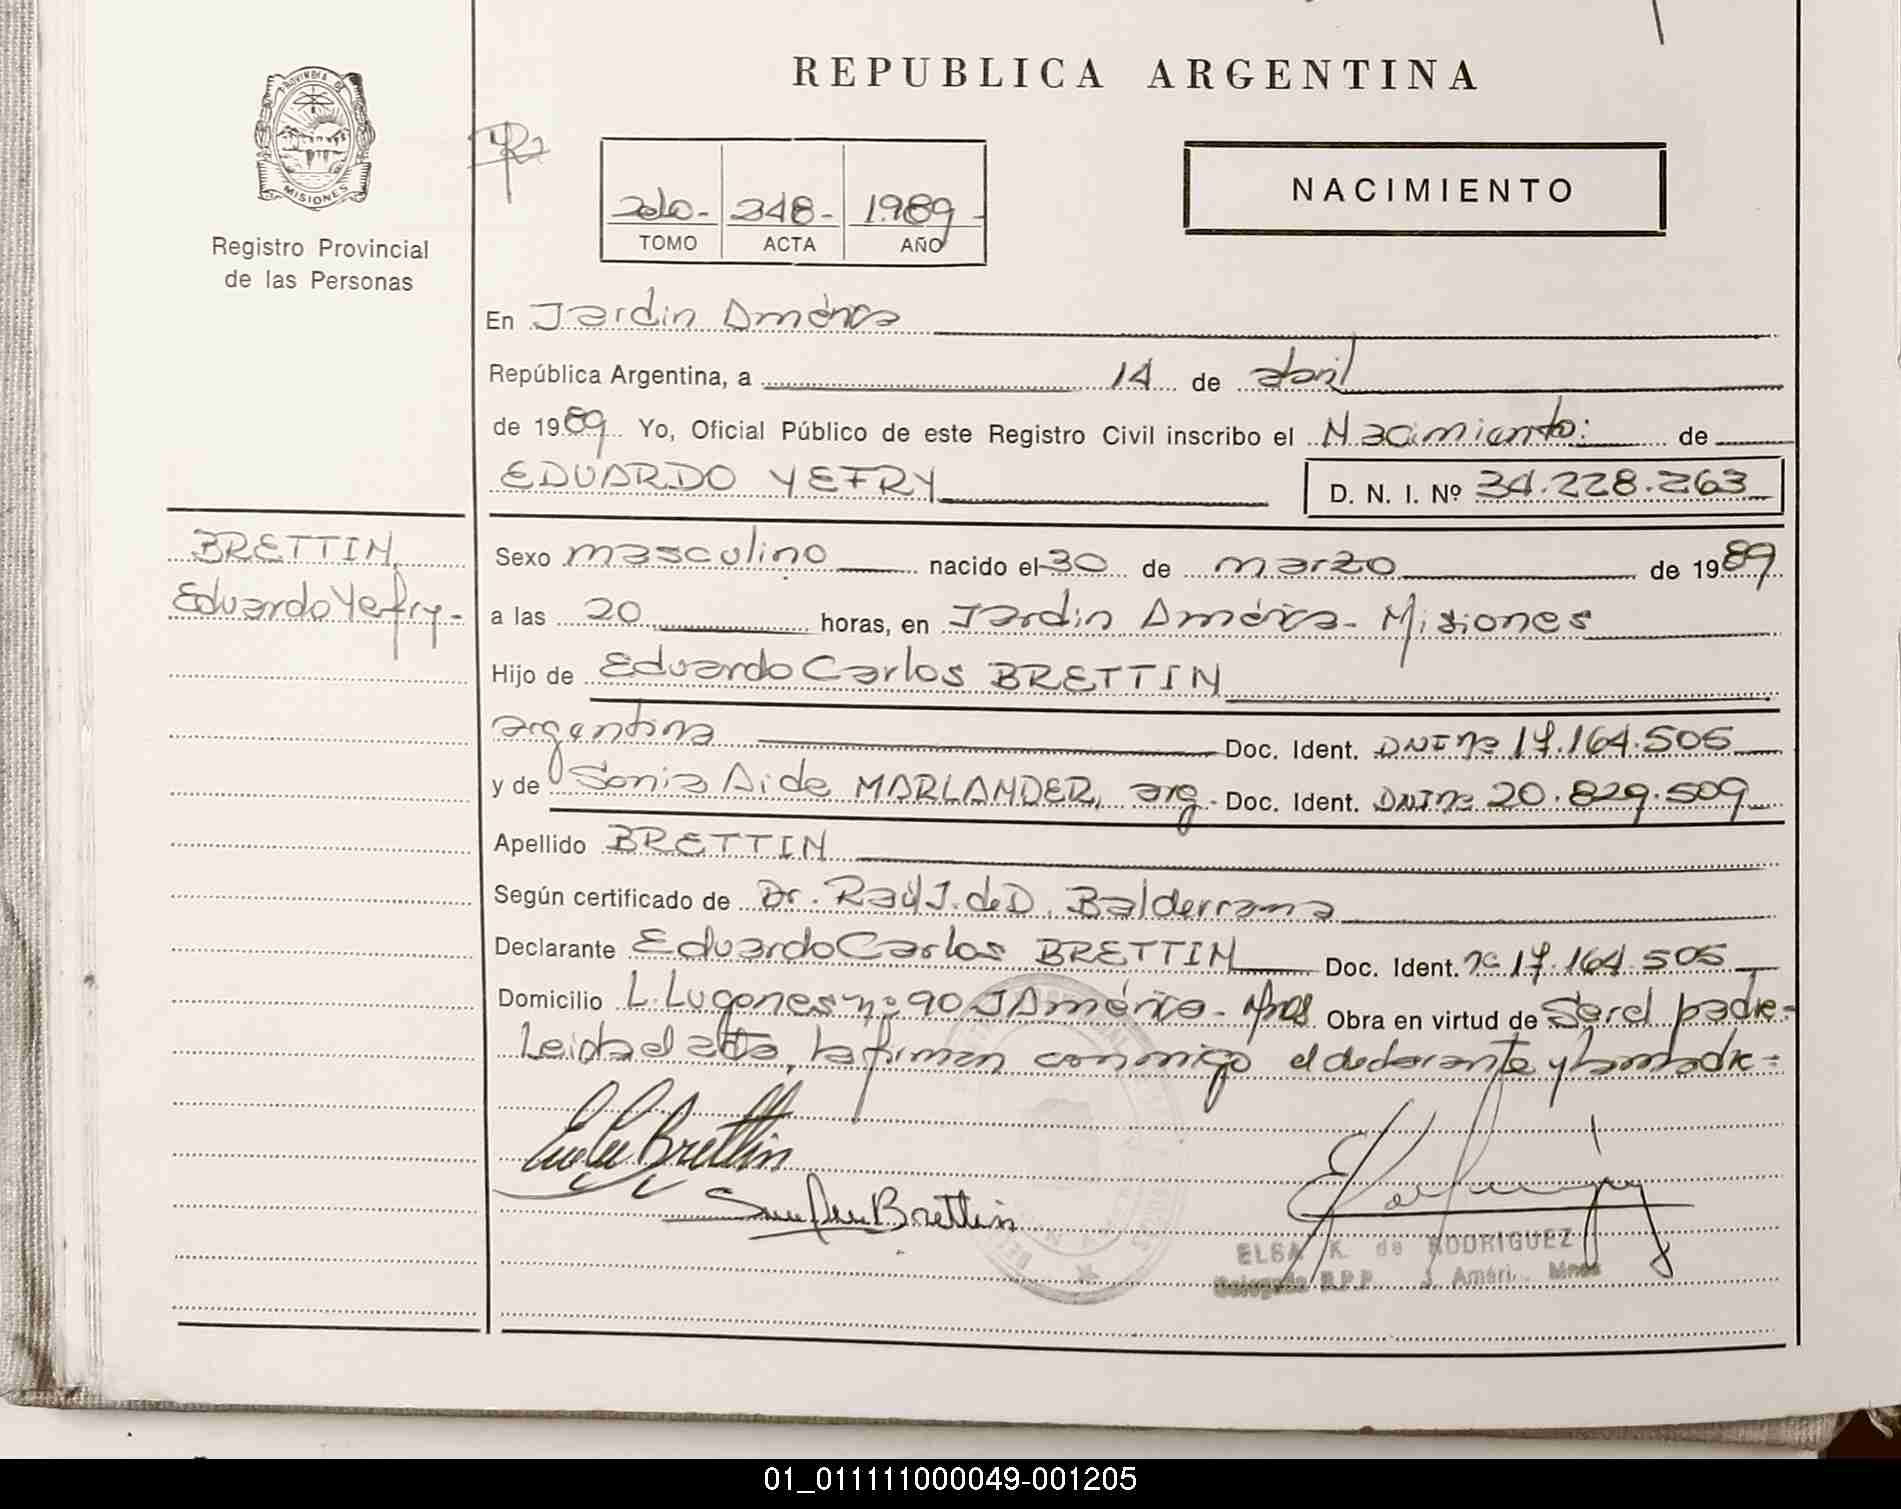 REPUBLICA ARGENTINA
PROVINCIA DE
MISIONES
Registro Provincial
de las Personas
2do- 348- 1.989-
TOMO ACTA AÑO
NACIMIENTO
En Jardin América
República Argentina, a 14 de abril
de 1989 Yo, Oficial Público de este Registro Civil inscribo el Nacimiento: de
EDUARDO YEFRY D. N. I. Nº 34.228.263
BRETTIN,
Eduardo Yefry-
Sexo masculino nacido el 30 de marzo de 1989
a las 20 horas, en Jardin América- Misiones
Hijo de Eduardo Carlos BRETTIN
argentina Doc. Ident. DNI nº 17.164.505
y de Sonia Aide MARLANDER, arg. Doc. Ident. DNI nº 20.829.509
Apellido BRETTIN
Según certificado de Dr. Raúl J. de D. Balderrama
Declarante Eduardo Carlos BRETTIN Doc. Ident. nº 17.164.505
Domicilio L. Lugones nº 90 J América- Mnes Obra en virtud de Ser el padre-
Leida el acta, la firman conmigo el declarante y la madre=
Brettin
Brettin
ELSA K. de RODRIGUEZ
Delegada R.P.P. J. Améri. Mnes
01_011111000049-001205